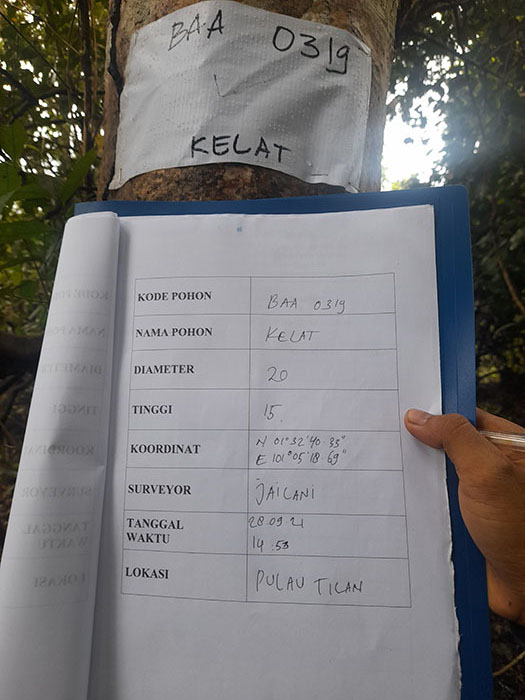 BAA 0319
KELAT
KODE POHON BAA 0319
NAMA POHON KELAT
DIAMETER 20
TINGGI 15.
KOORDINAT N 01°32'40.33"
E 101°05'18.69"
SURVEYOR JAILANI
TANGGAL 28.09 21
WAKTU 14.53
LOKASI PULAU TILAN